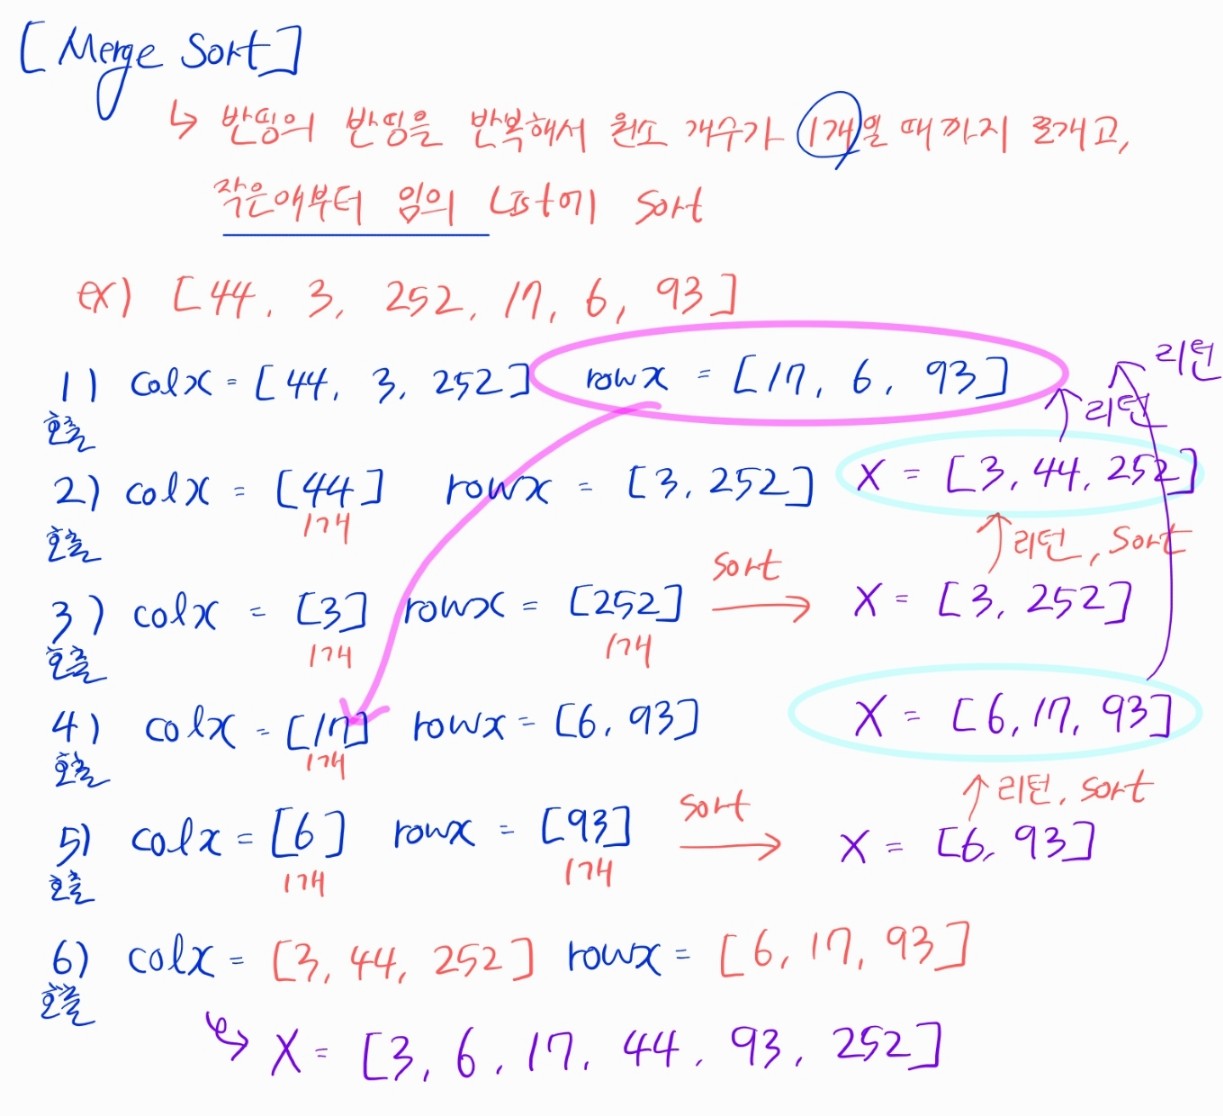 [Merge Sort]
↳ 반띵의 반띵을 반복해서 원소 개수가 1개일 때까지 쪼개고,
작은애부터 임의 List에 sort
ex) [44, 3, 252, 17, 6, 93]
1) colx = [44, 3, 252] rowx = [17, 6, 93] 리턴
호출 리턴
2) colx = [44] rowx = [3, 252] X = [3, 44, 252]
호출 1개 리턴, sort
3) colx = [3] rowx = [252] sort → X = [3, 252]
호출 1개 1개
4) colx = [17] rowx = [6, 93] X = [6, 17, 93]
호출 1개 ↑리턴, sort
5) colx = [6] rowx = [93] sort → X = [6, 93]
호출 1개 1개
6) colx = [3, 44, 252] rowx = [6, 17, 93]
호출
↳ X = [3, 6, 17, 44, 93, 252]